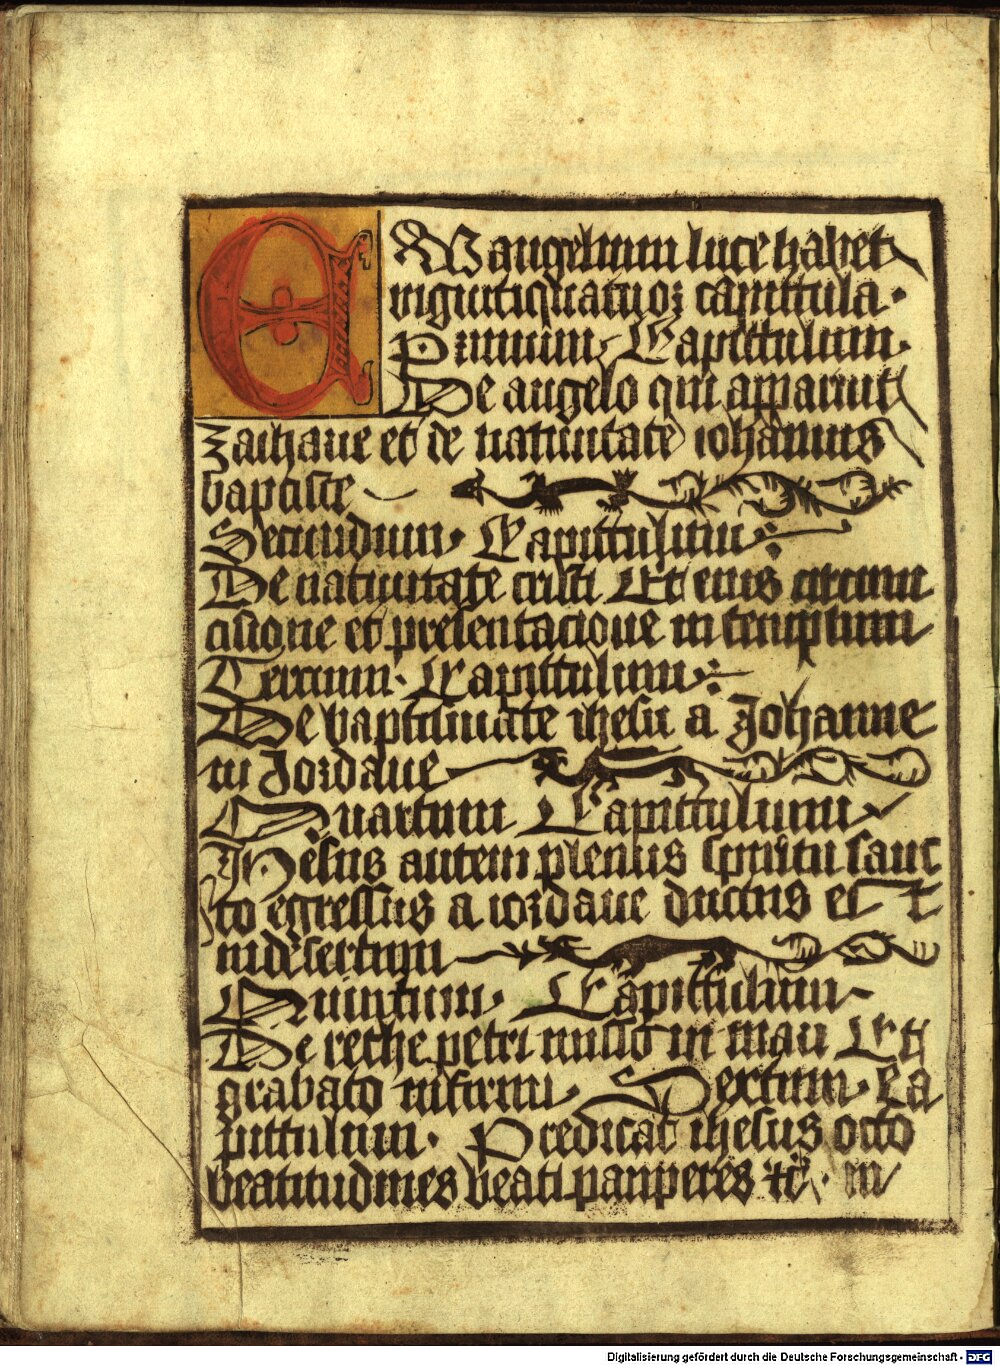 EWangelium luce habet
vigintiquatuor capittula .
Primum Capittulum .
De angelo qui apparuit
zacharie et de natiuitate iohannis
baptiste
Secundum Capittulum :
De natiuitate cristi Et eius circum
cisione et presentacione in templum
Tercium . Capittulum :
De baptismate ihesu a Johanne
in Jordane
Quartum Capittulum
Jhesus autem plenus spiritu sanc
to egressus a iordane ductus est
in desertum
Quintum Capittulum
De rethe petri misso in mari Et
grabato infirmi . Sextum . Ca
pittulum . Predicat ihesus octo
beatitudines beati pauperes in
Digitalisierung gefördert durch die Deutsche Forschungsgemeinschaft - DFG